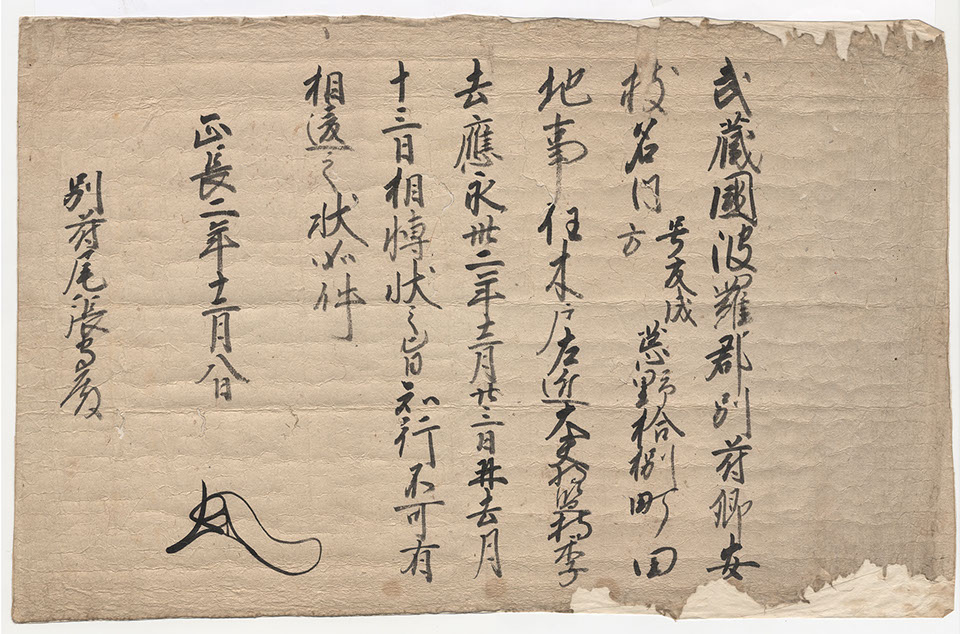 武藏國波羅郡別苻郷安
枝名内号友成方 野拾捌町田
地事任木戸左近大夫将監持季
去應永卅二年十二月廿三日并去月
十三日相博状之旨知行不可有
相違之状如件
正長二年十二月八日
別苻尾張守殿